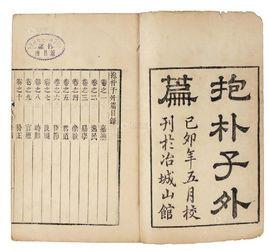 抱朴子外
篇
己卯年五月校
刊於冶城山館
抱朴子外篇目錄
卷之一 嘉遯
卷之二 逸民
卷之三 勗學
卷之四 崇教
卷之五 君道
卷之六 臣節
卷之七 良規
卷之八 時難
卷之九 官理
卷之十 務正